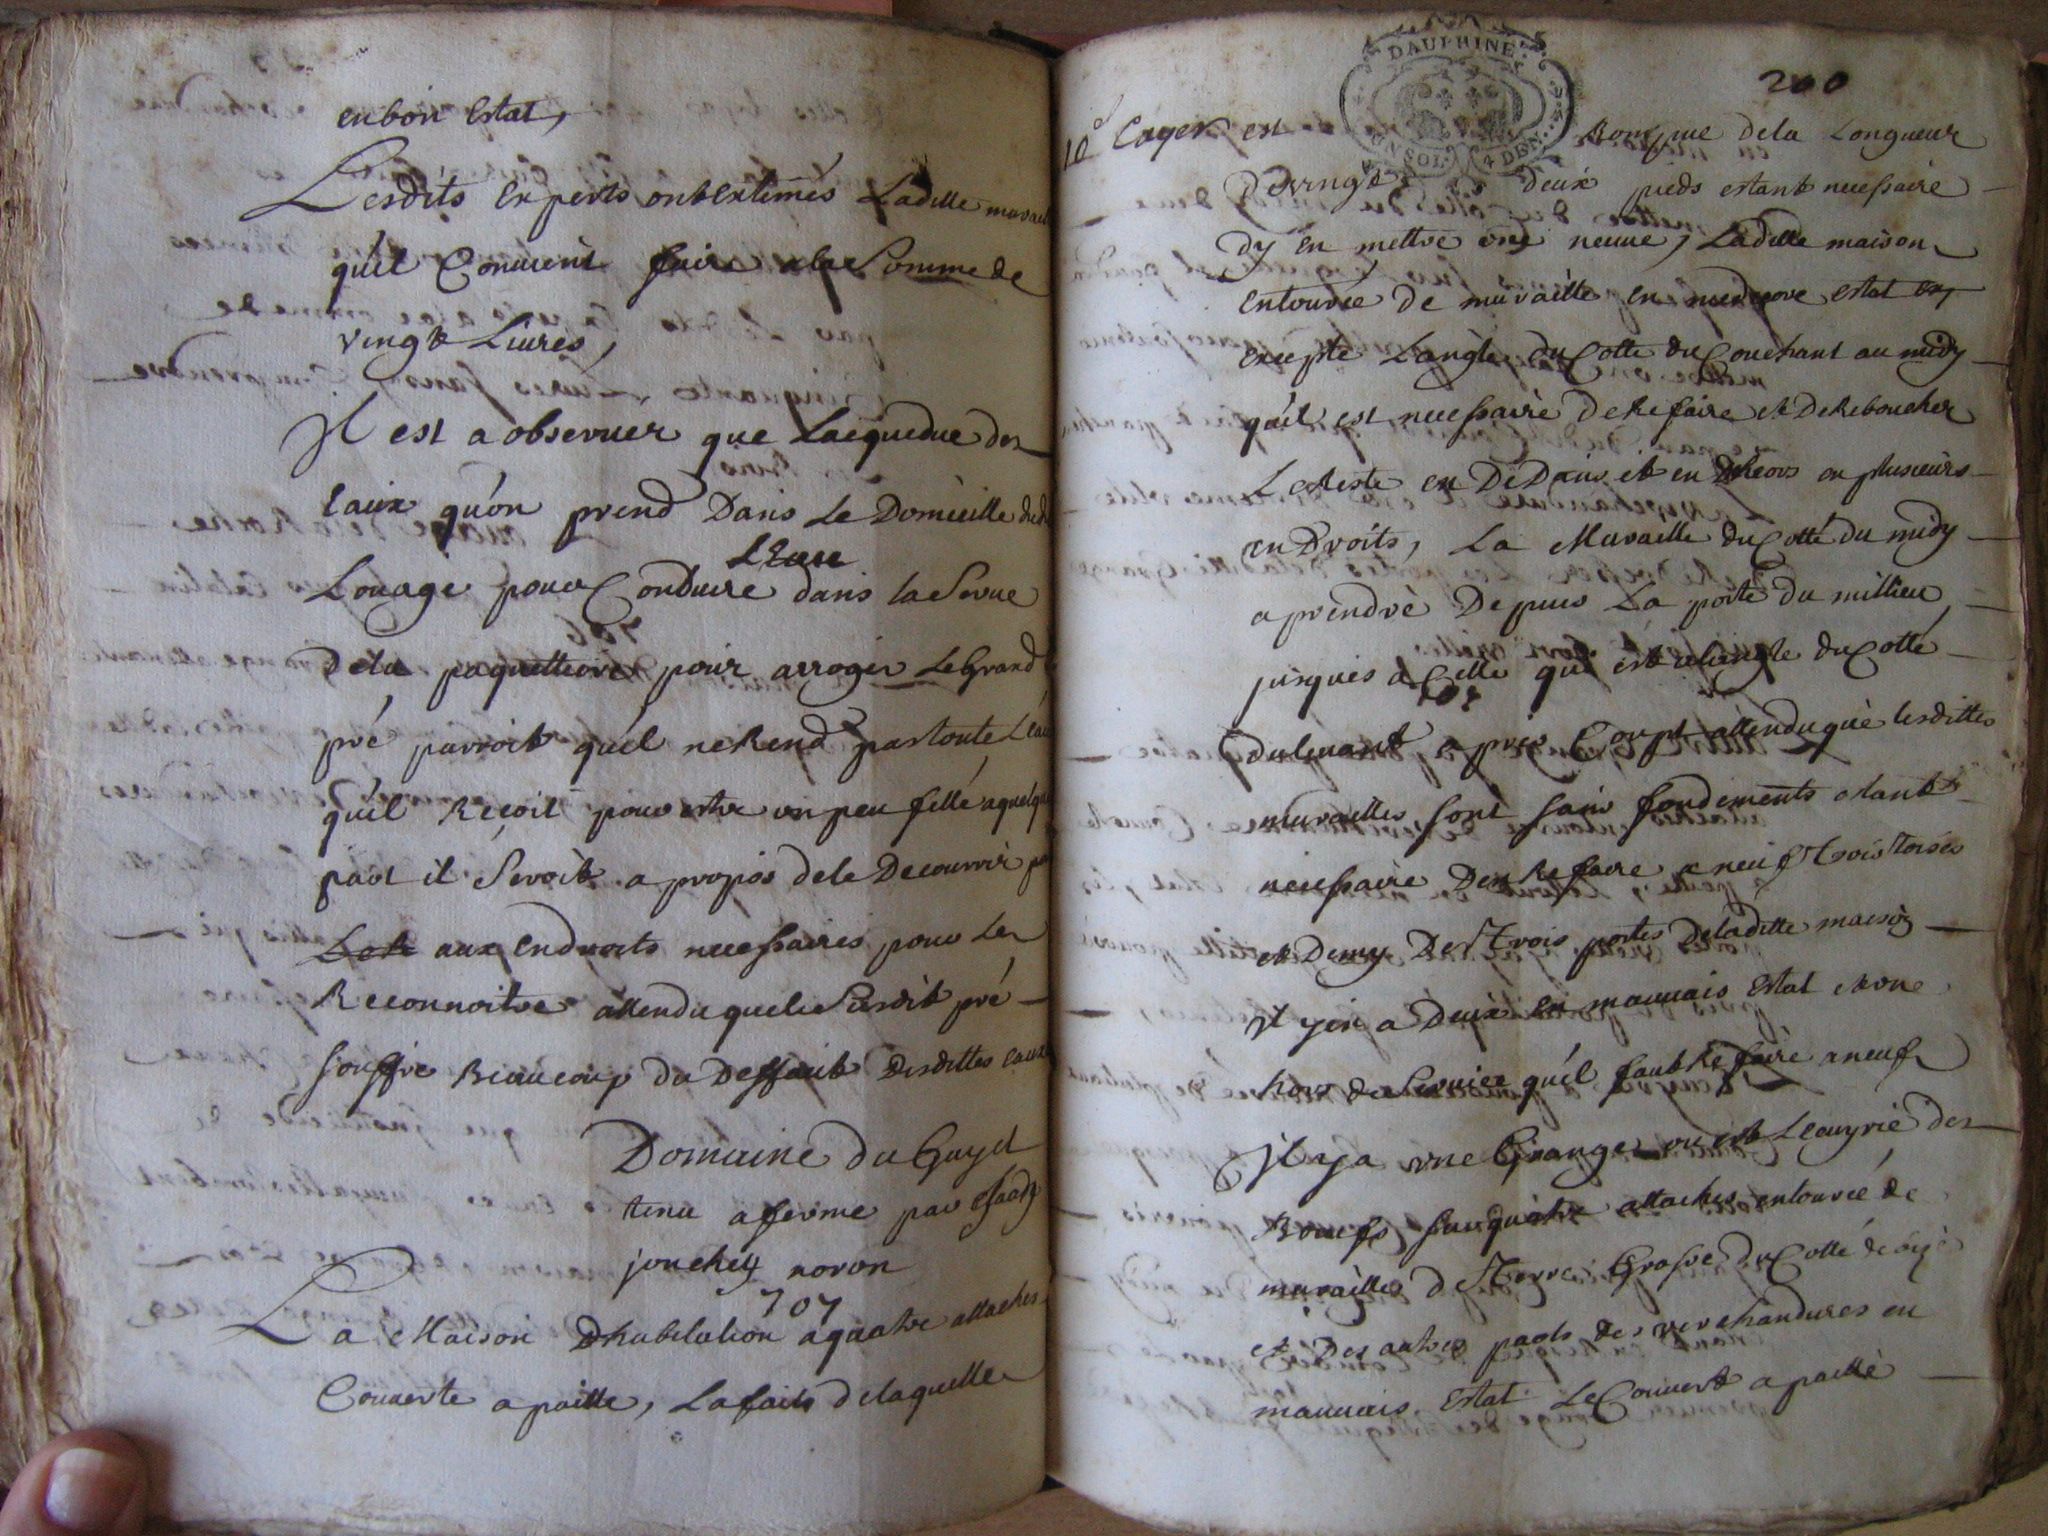 en bon Estat,
Lesdits Experts ont Extimés Ladille
qu'il Convient faire a la Somme de
vingt Livres,
Il est a observer que Lacquedue des
Eaux qu'on prend Dans Le Domicille dud
Leau
Louage pour Conduire dans la Serve
Dela paquettiere pour arroger Le Grand
pré parroit qu'il ne Rend pas toute Leau
qu'il Reçoit pour estre un peu fellé a quelque
part il Seroit a propos de le Decouvrir
aux Endroits necessaires pour Les
Reconnoitre attendu que le Susdit pré
souffre Beaucoup du Deffault Desdittes eaux
Domaine du Guyet
tenu a ferme par
jouchey noron
707
La Maison Dhabitation a quatre attaches
Couverte a paille, La faits delaquelle
200
DAUPHINE
UN SOL 4 DEN.
10e Cayer est Rompue dela Longueur
De vingt deux pieds estant necessaire
dy en mettre une neuve, Ladille maison
entourée De muraille en mediocre estat
excepte Langle du Cotte du Couchant au midy
qu'il est necessaire De Refaire et De Reboucher
Le Reste en DeDans et en Dehors en plusieurs
en Droits, La Muraille du Cotté du midy
a prendre Depuis La porte du millieu
jusques a Celle qui est a langle du Cotté
du levant a pris Coupt attendu que lesdittes
murailles sont sans fondements estant
necessaire Den Refaire a neuf trois toises
et Demy Des trois portes Deladitte maison
il y en a Deux en mauvais Estat et une
hors de Service qu'il faut Refaire a neuf
Il y a une Grange ou est Lecuyrie des
Boeufs sur quatre attaches entourée de
murailles d Terre Grasse du Cotté de
et Des autres parts des verchandures en
mauvais Estat Le Couvert a paille